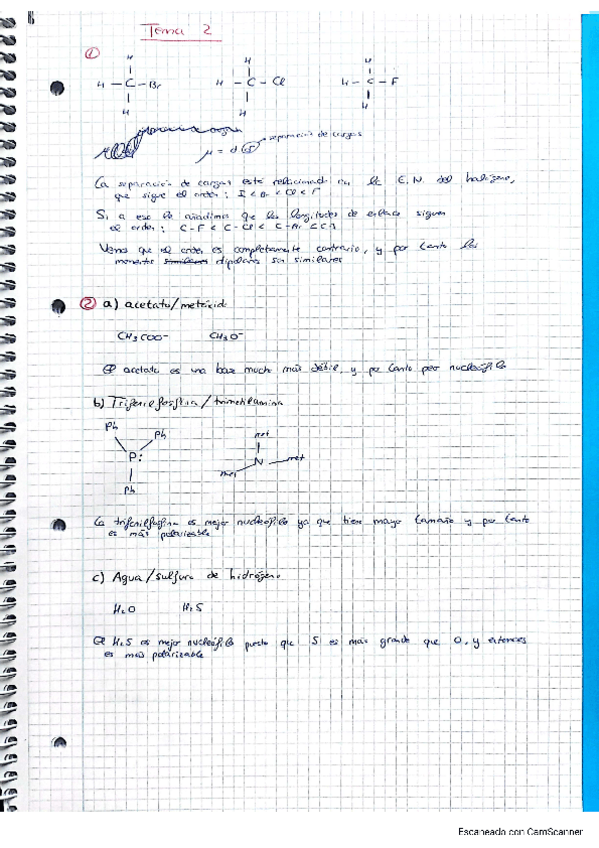 Tema 2
1
H H H
H - C - Br H - C - Cl H - C - F
H H H
separación de cargas
μ = d
La separación de cargas está relacionada con la E.N. del halógeno,
que sigue el orden: I < Br < Cl < F
Si a eso le añadimos que las longitudes de enlace siguen
el orden: C-F < C-Cl < C-Br < C-I
Vemos que el orden es completamente contrario, y por tanto los
momentos dipolares son similares
2 a) acetato/metóxido
CH3COO- CH3O-
El acetato es una base mucho más débil, y por tanto peor nucleófilo
b) Trifenilfosfina/trimetilamina
Ph
Ph
P:
Ph
met
N met
met
La trifenilfosfina es mejor nucleófilo ya que tiene mayor tamaño y por tanto
es más polarizable
c) Agua/sulfuro de hidrógeno
H2O H2S
El H2S es mejor nucleófilo puesto que S es más grande que O, y entonces
es más polarizable
Escaneado con CamScanner